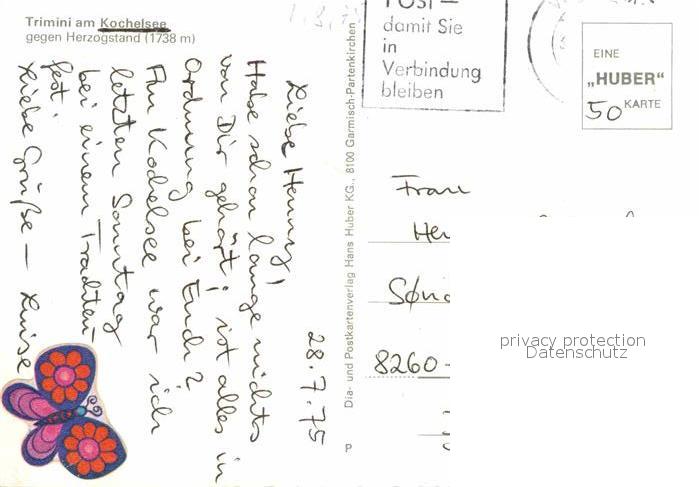 Trimini am Kochelsee
gegen Herzogstand (1738 m)
28.7.75
Liebe Henny,
Habe schon lange nichts
von Dir gehört; ist alles in
Ordnung bei Euch?
Am Kochelsee war ich
letzten Sonntag
bei einem Trachten-
fest.
Liebe Grüße - Luise
Dia- und Postkartenverlag Hans Huber KG., 8100 Garmisch-Partenkirchen
P
POST-
damit Sie
in
Verbindung
bleiben
EINE
„HUBER"
KARTE
50
Frau
8260
privacy protection
Datenschutz